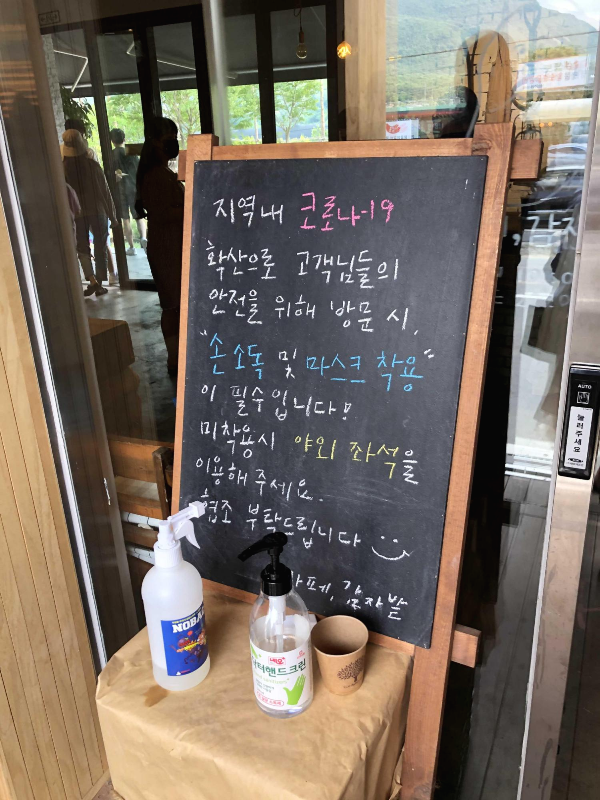 지역내 코로나-19
확산으로 고객님들의
안전을 위해 방문 시,
"손 소독 및 마스크 착용"
이 필수입니다!
미착용시 야외 좌석을
이용해 주세요.
협조 부탁드립니다
카페, 감자밭
AUTO
눌러주세요
핸드크린